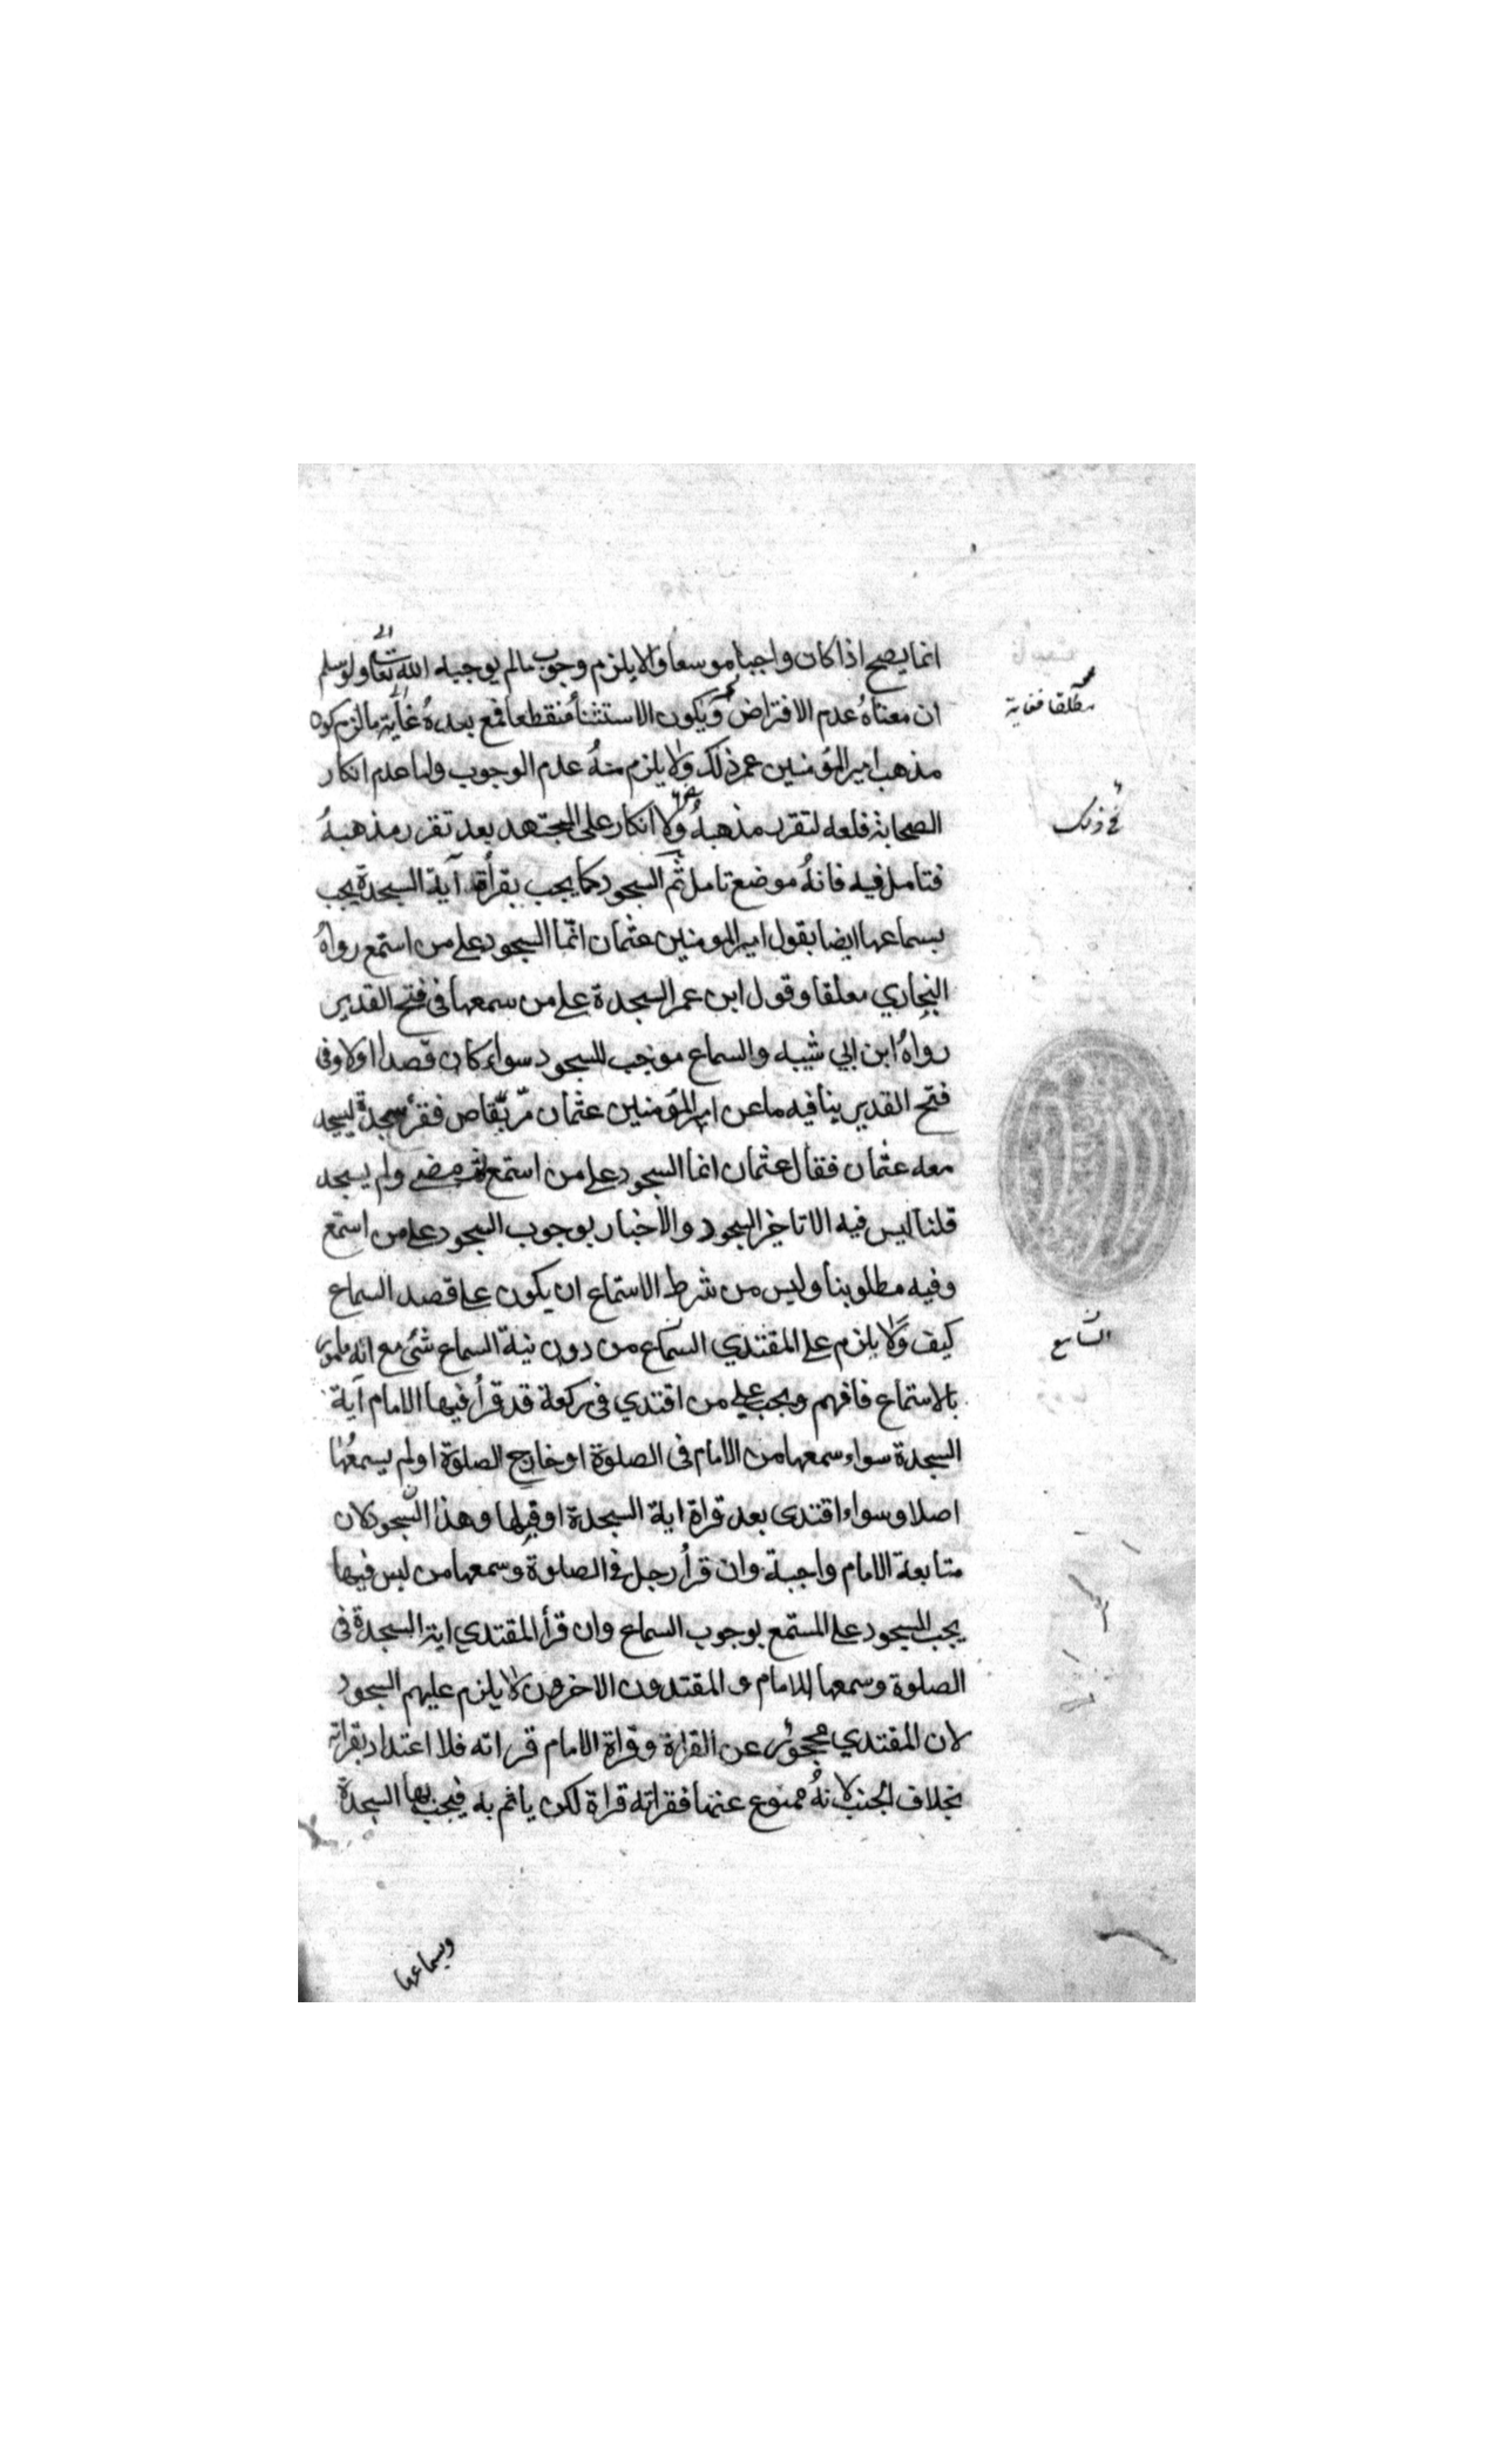 انما يصح اذا كان واجبا موسعا والا يلزم وجوب مالم يوجبه الله تعالى ولو سلم
ان معناهُ عدم الافتراض ويكون الاستثنأ منقطعا فمع بعده غاية مالزم كون
مذهب امير المؤمنين عمر ذلك ولا يلزم منهُ عدم الوجوب واما عدم انكار
الصحابة فلعله لتقرر مذهبهُ ولا انكار على المجتهد بعد تقرر مذهبهُ
فتامل فيه فانهُ موضع تامل ثم السجود كما يجب بقرأة آية السجدة يجب
بسماعها ايضا بقول امير المومنين عثمان انّما السجود على من استمع رواهُ
البخاري معلقا وقول ابن عمر السجدة على من سمعها فى فتح القدير
رواهُ ابن ابي شيبه والسماع موجب للسجود سواء كان قصدا اولا وفى
فتح القدير ينافيه ما عن امير المؤمنين عثمان مرّ بقاص فقرأ سجدة ليسجد
معه عثمان فقال عثمان انما السجود على من استمع ثم مضى ولم يسجد
قلنا ليس فيه الا تاخير السجود والأخبار بوجوب السجود على من استمع
وفيه مطلوبنا وليس من شرط الاستماع ان يكون على قصد السماع
كيف ولا يلزم على المقتدي السامع من دون نية السماع شئ مع انه مامور
بالاستماع فافهم ويجب على من اقتدي فى ركعة قد قرأ فيها الامام آية
السجدة سواء سمعها من الامام فى الصلوة او خارج الصلوة اولم يسمعُها
اصلا وسواء اقتدى بعد قراة اية السجدة او قبلها وهذا السّجود لان
متابعة الامام واجبة وان قرأ رجل فى الصلوة وسمعها من ليس فيها
يجب السجود على المستمع بوجوب السماع وان قرأ المقتدي اية السجدة فى
الصلوة وسمعها الامام و المقتدون الاخرون لا يلزم عليهم السجود
لان المقتدي محجور عن القراة وقراة الامام قراته فلا اعتداد بقراته
بخلاف الجنب لانهُ ممنوع عنها فقراته قراة لكن ياثم به فيجب بها السجدة
وبسماعها
مطلقا فغاية
فى ذلك
السامع